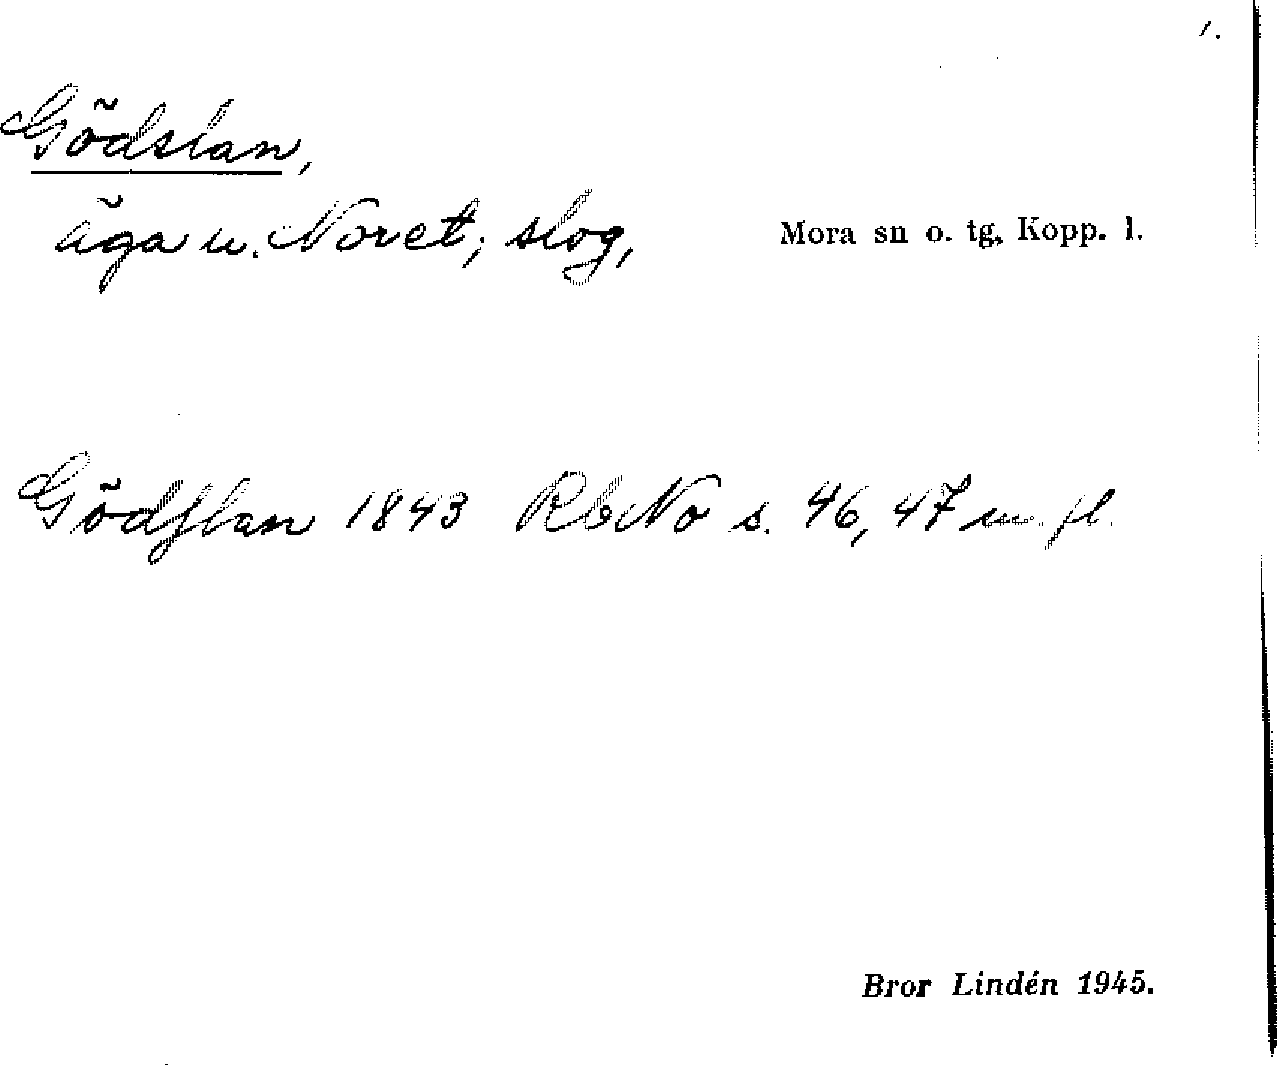 1.
Gödslan,
äga u. Noret; slog,
Mora sn o. tg, Kopp. l.
Gödſlan 1843 RbNo s. 46, 47 m. fl.
Bror Lindén 1945.